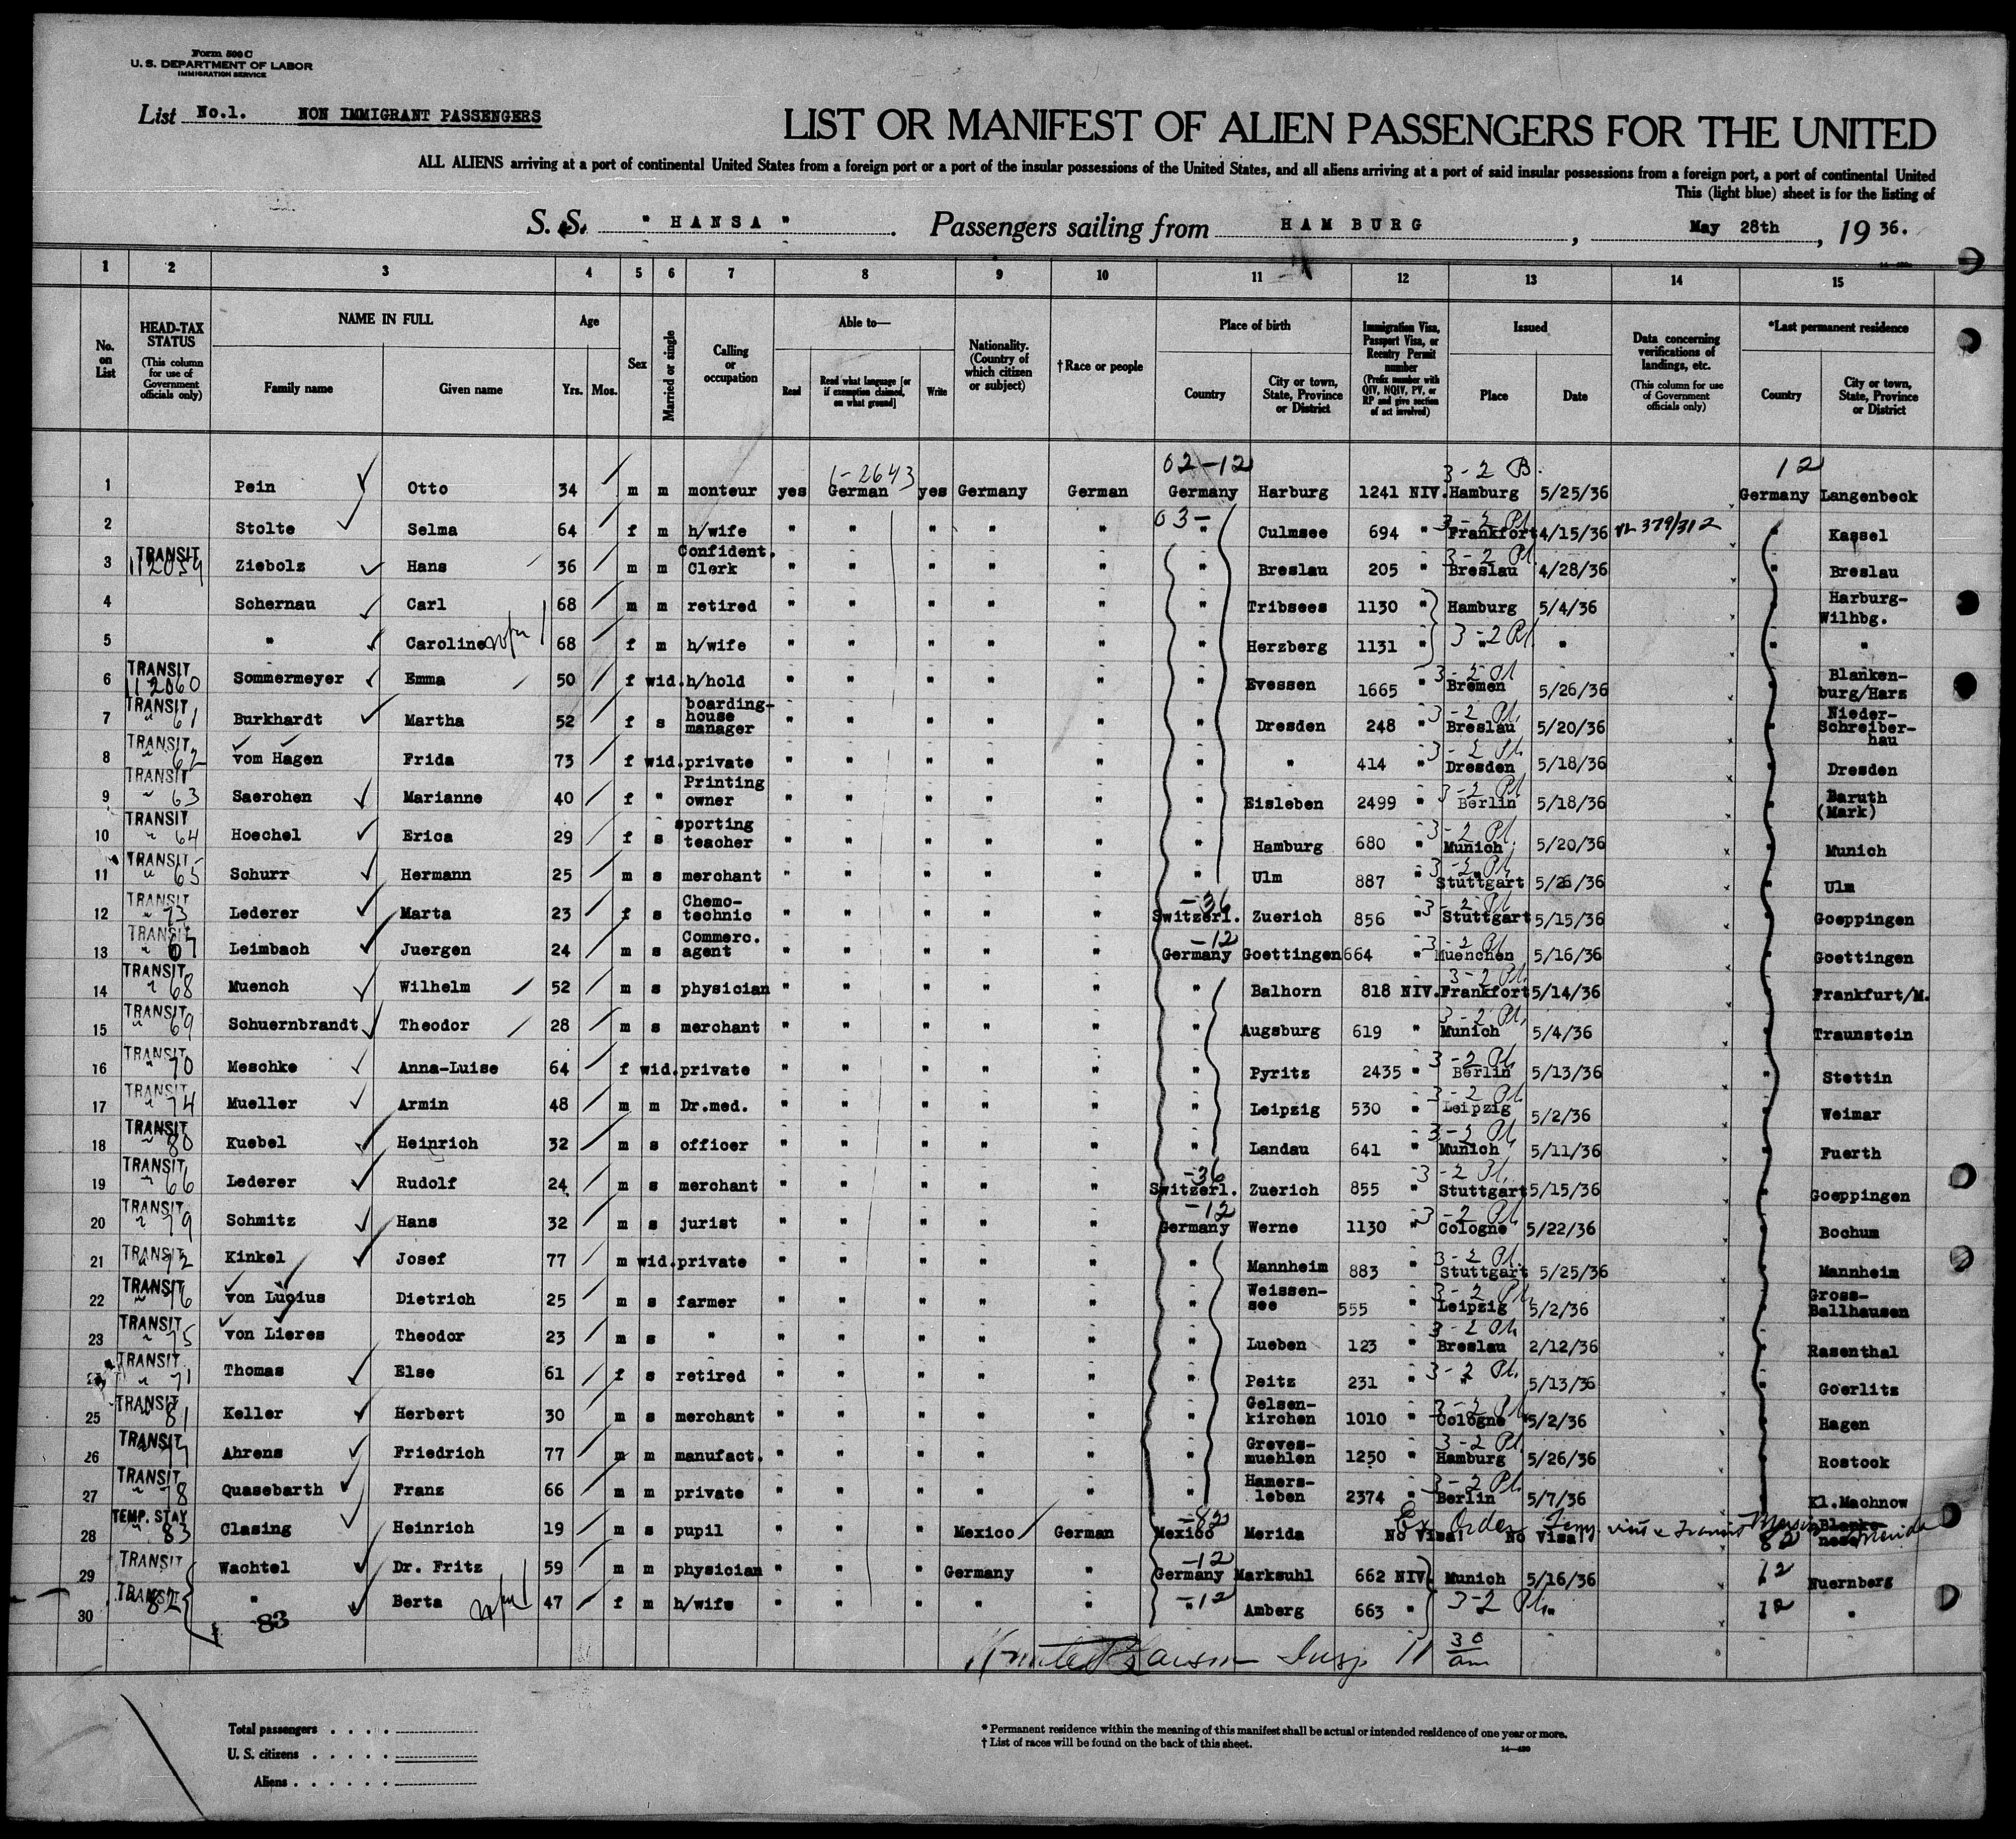 Form 500 C
U. S. DEPARTMENT OF LABOR
IMMIGRATION SERVICE
List No.1. NON IMMIGRANT PASSENGERS
LIST OR MANIFEST OF ALIEN PASSENGERS FOR THE UNITED
ALL ALIENS arriving at a port of continental United States from a foreign port or a port of the insular possessions of the United States, and all aliens arriving at a port of said insular possessions from a foreign port, a port of continental United
This (light blue) sheet is for the listing of
S. S. " HANSA " . Passengers sailing from HAMBURG , May 28th , 19 36.
1 2 3 4 5 6 7 8 9 10 11 12 13 14 15
No. on List
HEAD-TAX STATUS (This column for use of Government officials only)
NAME IN FULL
Family name Given name
Age Yrs. Mos.
Sex
Married or single
Calling or occupation
Able to—
Read Read what language [or if exemption claimed, on what ground] Write
Nationality. (Country of which citizen or subject)
†Race or people
Place of birth
Country City or town, State, Province or District
Immigration Visa, Passport Visa, or Reentry Permit number (Prefix number with QIV, NQIV, PV, or RP and give section of act involved)
Issued
Place Date
Data concerning verifications of landings, etc. (This column for use of Government officials only)
*Last permanent residence
Country City or town, State, Province or District
1-2643 02-12 3-2 B. 12
1 Pein Otto 34 m m monteur yes German yes Germany German Germany Harburg 1241 NIV. Hamburg 5/25/36 Germany Langenbeck
2 Stolte Selma 64 f m h/wife " " " " " 03- " Culmsee 694 " 3-2 Pl. Frankfort 4/15/36 VL 379/312 " Kassel
3 TRANSIT 112059 Ziebolz Hans 36 m m Confident. Clerk " " " " " " Breslau 205 " 3-2 Pl. Breslau 4/28/36 " Breslau
4 Schernau Carl 68 m m retired " " " " " " Tribsees 1130 " Hamburg 5/4/36 " Harburg-Wilhbg.
5 " Caroline 68 f m h/wife " " " " " " Herzberg 1131 " 3-2 Pl. " " " "
6 TRANSIT 112060 Sommermeyer Emma 50 f wid. h/hold " " " " " " Evessen 1665 " 3-2 Pl Bremen 5/26/36 " Blanken-burg/Harz
7 TRANSIT " 61 Burkhardt Martha 52 f s boarding-house manager " " " " " " Dresden 248 " 3-2 Pl. Breslau 5/20/36 " Nieder-Schreiber-hau
8 TRANSIT " 62 vom Hagen Frida 73 f wid. private " " " " " " " 414 " 3-2 Pl. Dresden 5/18/36 " Dresden
9 TRANSIT " 63 Saerchen Marianne 40 f " Printing owner " " " " " " Eisleben 2499 " 3-2 Pl. Berlin 5/18/36 " Baruth (Mark)
10 TRANSIT " 64 Hoechel Erica 29 f s sporting teacher " " " " " " Hamburg 680 " 3-2 Pl. Munich 5/20/36 " Munich
11 TRANSIT " 65 Schurr Hermann 25 m s merchant " " " " " " Ulm 887 " 3-2 Pl. Stuttgart 5/26/36 " Ulm
12 TRANSIT " 73 Lederer Marta 23 f s Chemo-technic " " " " " -36 Switzerl. Zuerich 856 " 3-2 Pl Stuttgart 5/15/36 " Goeppingen
13 TRANSIT " 67 Leimbach Juergen 24 m s Commerc. agent " " " " " -12 Germany Goettingen 664 " 3-2 Pl Muenchen 5/16/36 " Goettingen
14 TRANSIT " 68 Muench Wilhelm 52 m s physician " " " " " " Balhorn 818 NIV. 3-2 Pl. Frankfort 5/14/36 " Frankfurt/M.
15 TRANSIT " 69 Schuernbrandt Theodor 28 m s merchant " " " " " " Augsburg 619 " 3-2 Pl. Munich 5/4/36 " Traunstein
16 TRANSIT " 70 Meschke Anna-Luise 64 f wid. private " " " " " " Pyritz 2435 " 3-2 Pl. Berlin 5/13/36 " Stettin
17 TRANSIT " 74 Mueller Armin 48 m m Dr.med. " " " " " " Leipzig 530 " 3-2 Pl. Leipzig 5/2/36 " Weimar
18 TRANSIT " 80 Kuebel Heinrich 32 m s officer " " " " " " Landau 641 " 3-2 Pl. Munich 5/11/36 " Fuerth
19 TRANSIT " 66 Lederer Rudolf 24 m s merchant " " " " " -36 Switzerl. Zuerich 855 " 3-2 Pl. Stuttgart 5/15/36 " Goeppingen
20 TRANSIT " 79 Schmitz Hans 32 m s jurist " " " " " -12 Germany Werne 1130 " 3-2 Pl. Cologne 5/22/36 " Bochum
21 TRANSIT " 72 Kinkel Josef 77 m wid. private " " " " " " Mannheim 883 " 3-2 Pl. Stuttgart 5/25/36 " Mannheim
22 TRANSIT " 76 von Lucius Dietrich 25 m s farmer " " " " " " Weissen-see 555 " 3-2 Pl. Leipzig 5/2/36 " Gross-Ballhausen
23 TRANSIT " 75 von Lieres Theodor 23 m s " " " " " " " Lueben 123 " 3-2 Pl. Breslau 2/12/36 " Rasenthal
TRANSIT " 71 Thomas Else 61 f s retired " " " " " " Peitz 231 " 3-2 Pl. " 5/13/36 " Goerlitz
25 TRANSIT 81 Keller Herbert 30 m s merchant " " " " " " Gelsen-kirchen 1010 " 3-2 Pl Cologne 5/2/36 " Hagen
26 TRANSIT 77 Ahrens Friedrich 77 m m manufact. " " " " " " Greves-muehlen 1250 " 3-2 Pl. Hamburg 5/26/36 " Rostock
27 TRANSIT " 78 Quasebarth Franz 66 m m private " " " " " " Hamers-leben 2374 " 3-2 Pl. Berlin 5/7/36 " Kl.Machnow
28 TEMP. STAY " 83 Clasing Heinrich 19 m s pupil " " " Mexico German -82 Mexico Merida No Visa! No Visa! Ex Order Temp. visit & Transit Mexico 82 Blanke-nese Merida
29 TRANSIT Wachtel Dr. Fritz 59 m m physician " " " Germany " -12 Germany Marksuhl 662 NIV. Munich 5/16/36 12 " Nuernberg
30 TRANSIT 82 " Berta 47 f m h/wife " " " " " -12 " Amberg 663 " 3-2 Pl. " 12 " "
83
Insp 11 30 am
Total passengers . . . .
U. S. citizens . . . . .
Aliens . . . . . .
* Permanent residence within the meaning of this manifest shall be actual or intended residence of one year or more.
† List of races will be found on the back of this sheet.
14—430